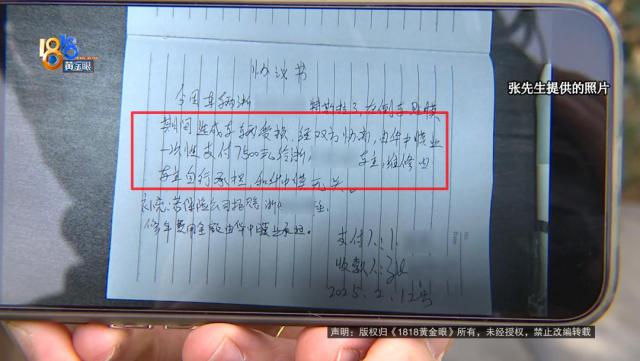 1818
黄金眼
张先生提供的照片
协议书
今因车辆浙 特斯拉3, 在倒车
期间造成车辆受损, 经双方协商, 由华中
一次性支付7500元给浙 车主, 维修由
车主自行承担, 和华中 无关。
补充: 若保险公司拒赔浙
修车费用全额由华中 承担。
支付人:
收款人:
2025.2.12号
声明：版权归《1818黄金眼》所有，未经授权，禁止改编转载